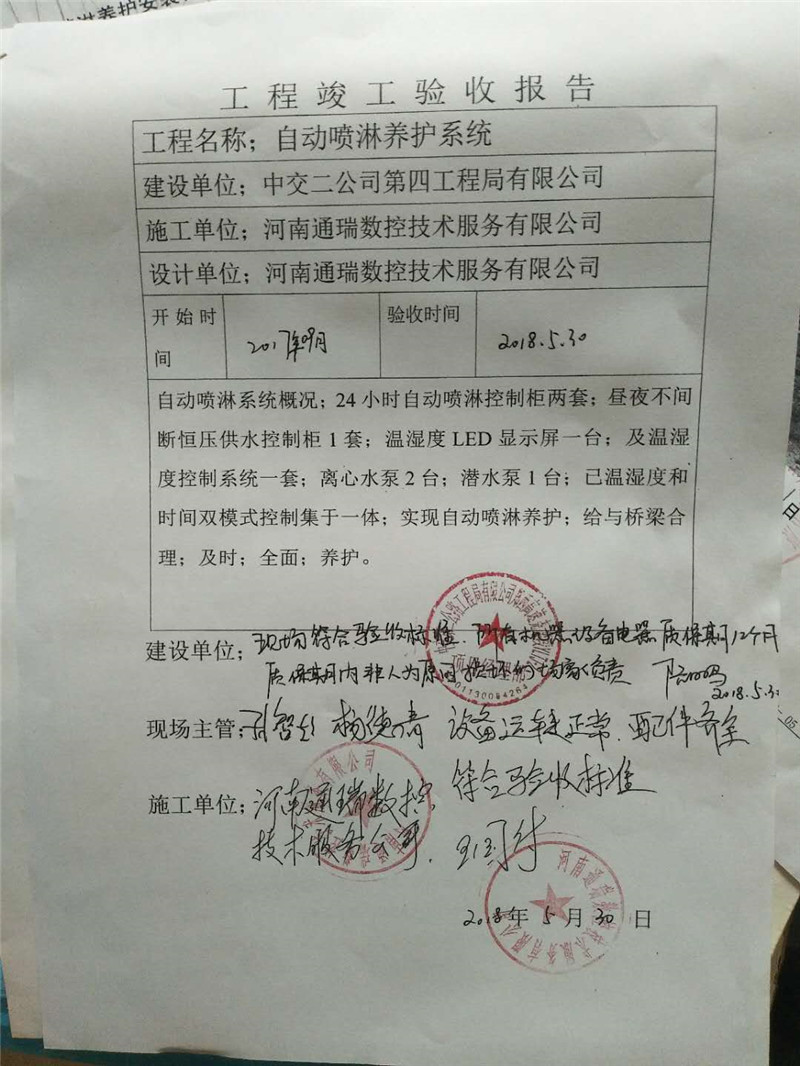 工程竣工验收报告
工程名称；自动喷淋养护系统
建设单位；中交二公司第四工程局有限公司
施工单位；河南通瑞数控技术服务有限公司
设计单位；河南通瑞数控技术服务有限公司
开始时间 2017年09月 验收时间 2018.5.30
自动喷淋系统概况；24小时自动喷淋控制柜两套；昼夜不间
断恒压供水控制柜1套；温湿度LED显示屏一台；及温湿
度控制系统一套；离心水泵2台；潜水泵1台；已温湿度和
时间双模式控制集于一体；实现自动喷淋养护；给与桥梁合
理；及时；全面；养护。
建设单位；现场符合验收标准 所有机器设备电器质保期12个月
质保期内非人为原因损坏的厂家负责
2018.5.30
现场主管； 设备运转正常，配件齐全
符合验收标准
施工单位；河南通瑞数控
技术服务公司
2018年5月30日